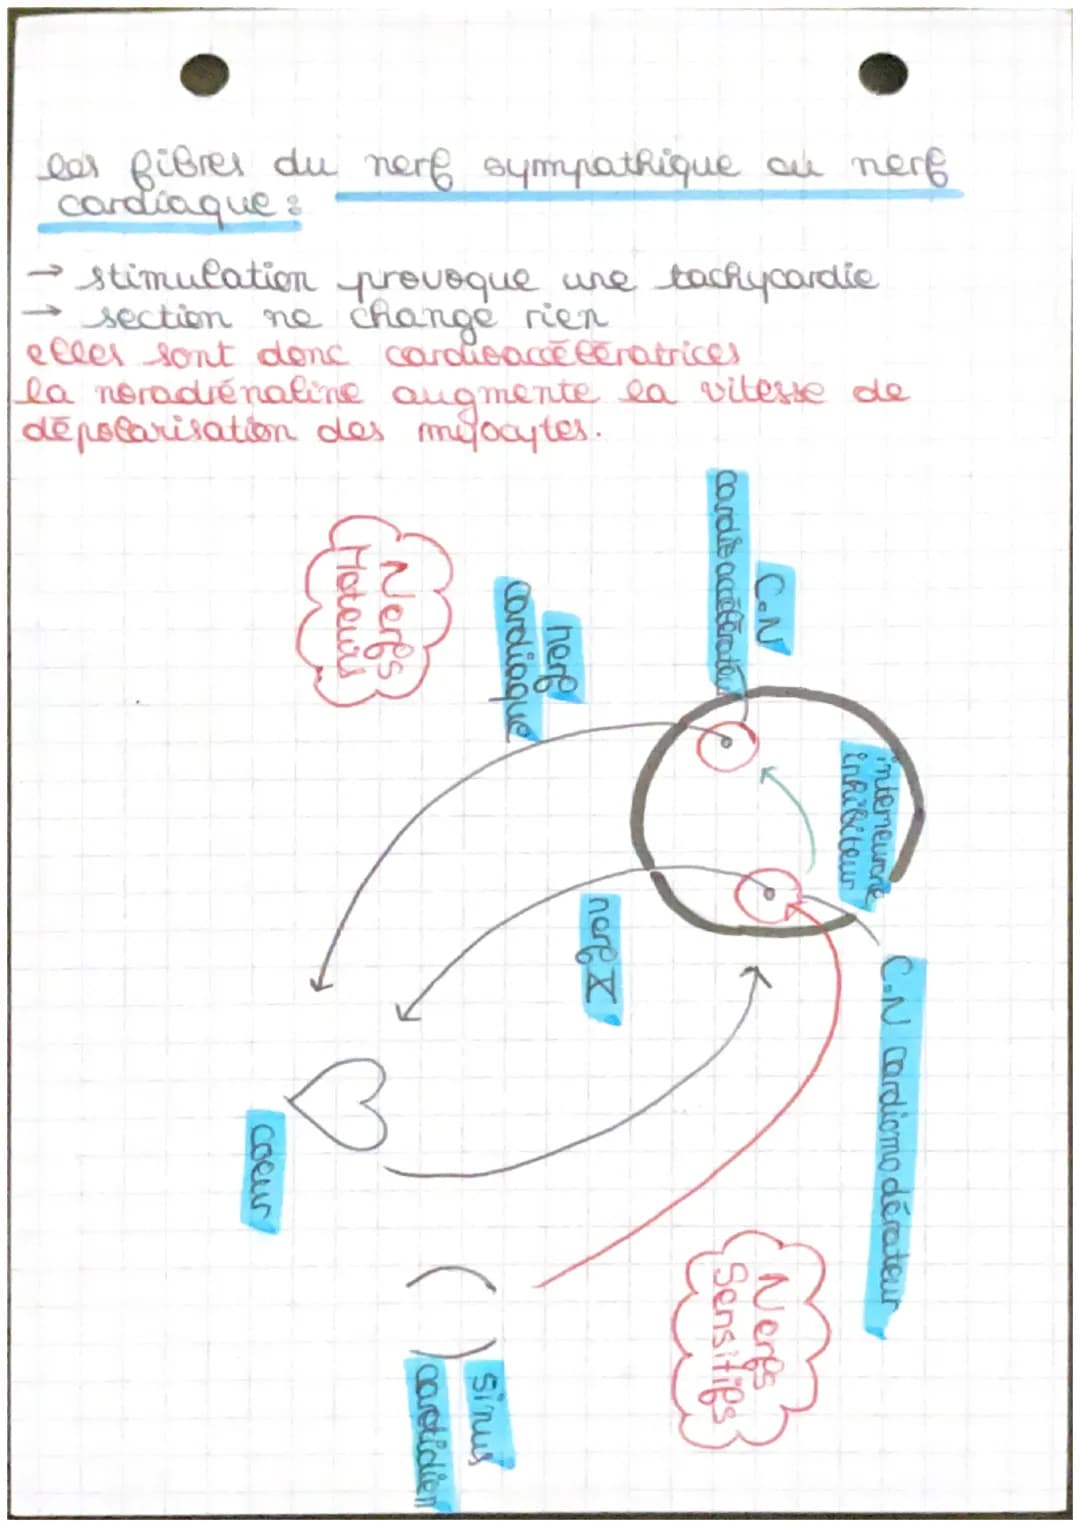 les fibres du nerf sympathique ou nerf
cardiaque :
→ stimulation provoque une tachycardie
→ section ne change rien
elles sont donc cardioaccélératrices
la noradrénaline augmente la vitesse de
dépolarisation des myocytes.
C.N
cardioaccélérateur
nerf
cardiaque
Nerfs
Moteurs
interneurone
inhibiteur
nerf X
C.N cardiomodérateur
coeur
Nerfs
Sensitifs
sinus
carotidien